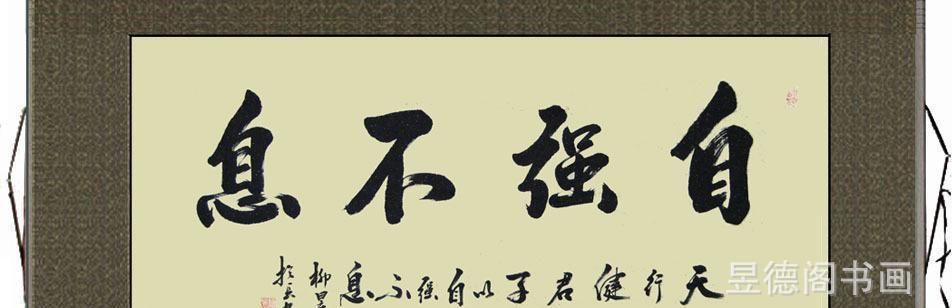 自强不息
天行健君子以自强不息
昱德阁书画